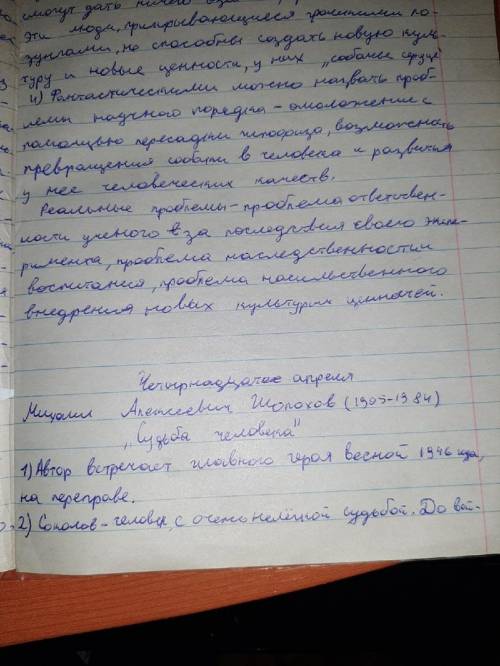 смогут дать ничего
эти люди, прикрывающиеся громкими ло-
зунгами, не способны создать новую куль-
туру и новые ценности, у них „собачье сердце"
4) Фантастическими можно назвать проб-
лемы научного порядка - омоложение с
помощью пересадки гипофиза, возможность
превращения собаки в человека и развития
у нее человеческих качеств.
Реальные проблемы - проблема ответствен-
ности ученого за последствия своего экспе-
римента, проблема наследственности и
воспитания, проблема насильственного
внедрения новых культурных ценностей.
Четырнадцатое апреля
Михаил Алексеевич Шолохов (1905-1984)
„Судьба человека"
1) Автор встречает главного героя весной 1946 года,
на переправе.
2) Соколов - человек, с очень нелёгкой судьбой. До вой-